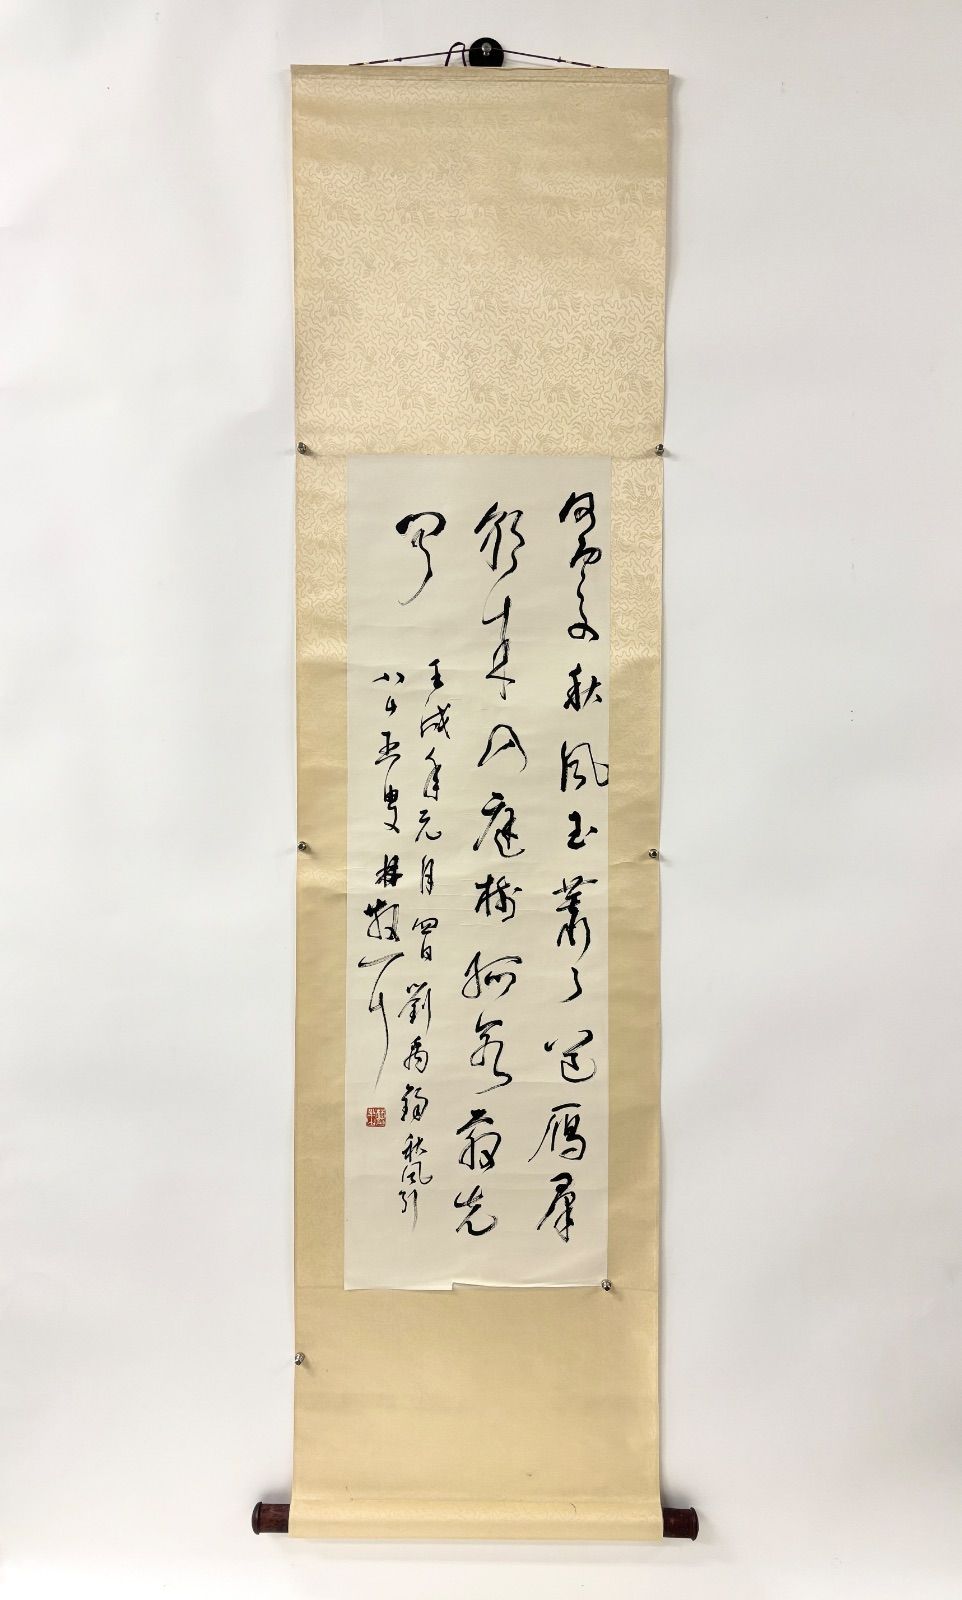 何處秋風至蕭々送雁群
朝來入庭樹孤客最先
聞
壬戌年元月四日劉禹錫秋風引
八十五叟林散耳